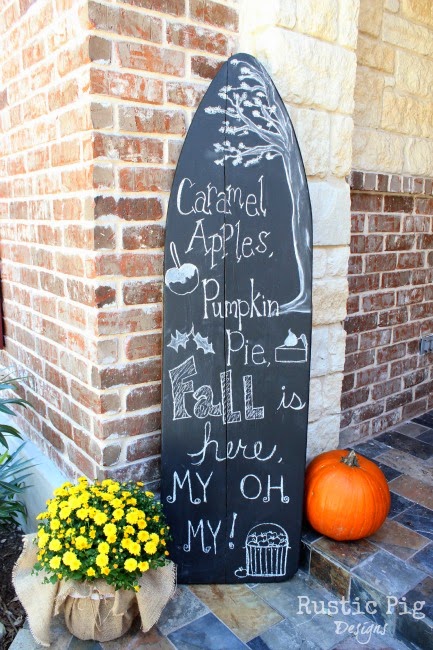 Caramel
Apples,
Pumpkin
Pie,
Fall is
here,
MY OH
MY!
Rustic Pig
Designs